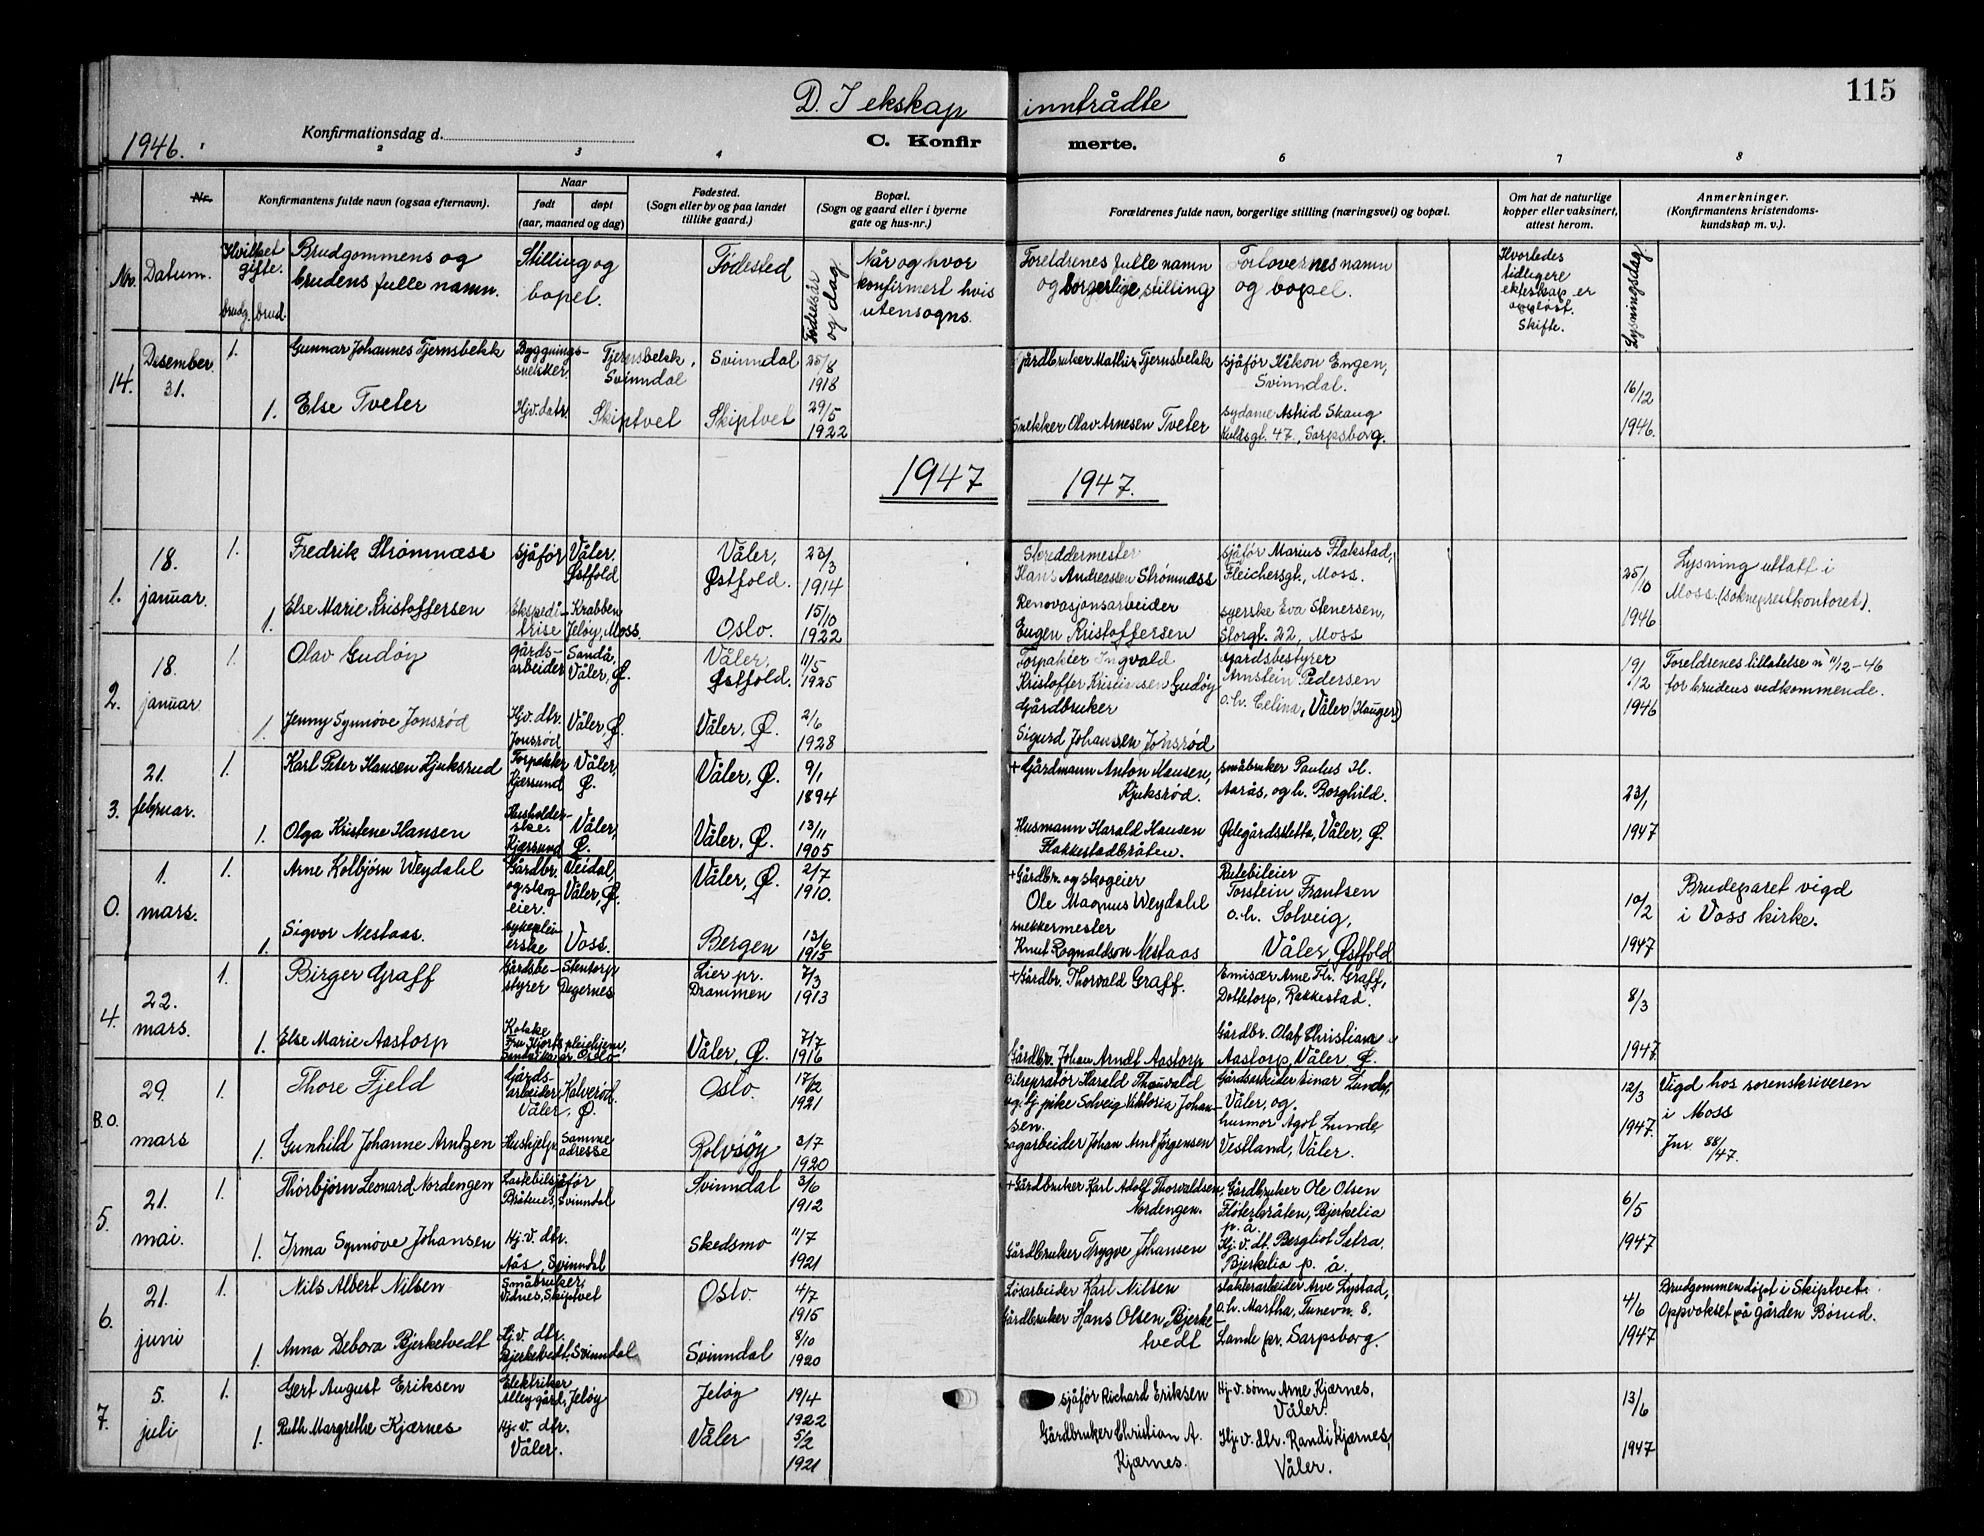 D. I ekskap inntrådte
115
1946.
Konfirmationsdag d.
C. Konfir merte.
2 3 4 6 7 8
Nr.
Konfirmantens fulde navn (ogsaa efternavn).
Naar
født døpt
(aar, maaned og dag)
Fødested.
(Sogn eller by og paa landet
tillike gaard.)
Bopæl.
(Sogn og gaard eller i byerne
gate og hus-nr.)
Forældrenes fulde navn, borgerlige stilling (næringsvei) og bopæl.
Om hat de naturlige
kopper eller vaksinert,
attest herom.
Anmerkninger.
(Konfirmantens kristendoms-
kundskap m. v.).
Nr. Datum.
Hvilket
gifte.
brudg. brud.
Brudgommens og
brudens fulle namn.
Stilling og
bopel.
Fødested
Fødselsår
og dag.
Når og hvor
konfirmert hvis
utensogns.
Foreldrenes fulle namn
og borgerlige stilling
Forlovernes namn
og bopel.
Hvorledes
tidligere
ekteskap er
oppløst.
Skifte.
Lysningsdag.
14.
Desember
31.
1.
Gunnar Johannes Tjernsbekk
Byggnings-
snekker.
Tjernsbekk,
Svinndal
Svinndal
25/8
1918
Gårdbruker Mathias Tjernsbekk
sjåfør Håkon Engen,
Svinndal.
16/12
1946.
1.
Else Tveter
Hjv. datr.
Skiptvet
Skiptvet
29/5
1922
Snekker Olav Arnesen Tveter
sydame Astrid Skaug
Kuldsgt. 47, Sarpsborg.
1947 1947.
1.
18.
januar.
1.
Fredrik Strømnæss
sjåfør
Våler,
Østfold
Våler,
Østfold.
23/3
1914
Skreddermester
Hans Andreassen Strømnæss
sjåfør Marius Flakstad,
Fleichersgt., Moss.
25/10
1946
Lysning uttatt i
Moss. (sokneprestkontoret).
1.
Else Marie Kristoffersen
Ekspedi-
trise
Krabben
Jeløy, Moss.
Oslo.
15/10
1922
Renovasjonsarbeider
Eugen Kristoffersen
syerske Eva Stenersen,
Storgt. 22, Moss
2.
18.
januar.
1.
Olav Gudøy
gårds-
arbeider
Sandå,
Våler, Ø.
Våler,
Østfold.
11/5
1925
Forpakter Ingvald
Kristoffer Kristiansen Gudøy
Gårdsbestyrer
Arnstein Pedersen
o.h. Celina, Våler (Hauger)
19/12
1946
Foreldrenes tillatelse 11/12-46
for brudens vedkommende.
1.
Jenny Synnøve Jonsrød
Hjv. dtr.
Jonsrød
Våler, Ø.
Våler, Ø.
2/6
1928
Gårdbruker
Sigurd Johansen Jonsrød
3.
21.
februar.
1.
Karl Peter Hansen Kjuksrud
Forpakter
Kjærsund
Våler,
Ø.
Våler, Ø.
9/1
1894
+ Gårdmann Anton Hansen,
Kjuksrød.
småbruker Paulus H.
Aarås, og h. Borghild.
23/1
1947
1.
Olga Kristene Hansen
Husholder-
ske.
Kjærsund
Våler,
Ø.
Våler, Ø.
13/11
1905
Husmann Harald Hansen
Flakkestadbråten.
Ødegårdssletta, Våler, Ø.
0.
1.
mars.
1.
Arne Kolbjørn Weydahl
Gårdbr.
og skog-
eier.
Veidal,
Våler, Ø.
Våler, Ø.
2/7
1910.
+ Gårdbr. og skogeier
Ole Magnus Weydahl
Rutebileier
Torstein Frantsen
o.h. Solveig,
Våler, Østfold
10/2
1947
Brudeparet vigd
i Voss kirke.
1.
Sigvor Nestaas.
sykeplei-
erske
Voss.
Bergen
13/6
1915
snekkermester
Knut Rognaldson Nestaas
4.
22.
mars.
1.
Birger Graff
Gårdsbe-
styrer
Stentorp
Degernes
Lier pr.
Drammen
7/3
1913
+ Gårdbr. Thorvald Graff.
Emisær Arne Fr. Graff,
Dottetorp, Rakkestad.
8/3
1947.
1.
Else Marie Aastorp
Kokke
Våler, Ø.
7/7
1916
Gårdbr. Johan Arndt Aastorp
Gårdbr. Olaf Christian
Aastorp, Våler Ø.
B.0.
29.
mars
1.
Thore Fjeld
Gårds-
arbeider
Kalverød.
Våler, Ø.
Oslo.
17/2
1921
Bilreparatør Harald Thorvald
og pike Solveig Viktoria Johan-
sen.
Gårdsarbeider Einar Lunde,
Våler, og
husmor Agot Lunde
Vestland, Våler.
12/3
1947.
Vigd hos sorenskriveren
i Moss
Jnr. 88/47.
1.
Gunhild Johanne Arntzen
Hushjelp
Samme
adresse
Rolvsøy
3/7
1920
Sagarbeider Johan Arnt Jørgensen
5.
21.
mai.
1.
Thorbjørn Leonard Nordengen
Lastebilsjåfør
Bråtenes, Svinndal
Svinndal
3/6
1912
+ Gårdbruker Karl Adolf Thorvaldsen
Nordengen.
Gårdbruker Ole Olsen
Fløterbråten, Bjerkelia
p. å.
6/5
1947
1.
Irma Synnøve Johansen
Hj. v. dtr.
Aås, Svinndal
Skedsmo
11/7
1921
Gårdbruker Trygve Johansen
Hj. v. dt. Bergliot Sætra.
Bjerkelia p. å.
6.
21.
juni
1.
Nils Albert Nilsen
Småbruker
Vidnes, Skiptvet
Oslo.
4/7
1915
Løsarbeider Karl Nilsen
slakterarbeider Arve Lystad,
o.h. Martha, Tunevn. 8.
Lande pr. Sarpsborg.
4/6
1947
Brudgommen døpt i Skiptvet.
Oppvokset på gården Børud.
1.
Anna Debora Bjerketvedt
Hj. v. dtr.
Bjerketvedt, Svinndal
Svinndal
8/10
1920
Gårdbruker Hans Olsen Bjerke
tvedt
7.
5.
juli
1.
Gert August Eriksen
Elektriker
Alleygård, Jeløy
Jeløy
19/4
1922
sjåfør Richard Eriksen
Hj. v. sønn Arne Kjærnes,
Våler.
13/6
1947
1.
Ruth Margrethe Kjærnes
Hj. v. dtr.
Våler.
Våler
5/2
1921
Gårdbruker Christian A.
Kjærnes.
Hj. v. dtr. Randi Kjærnes,
Våler.